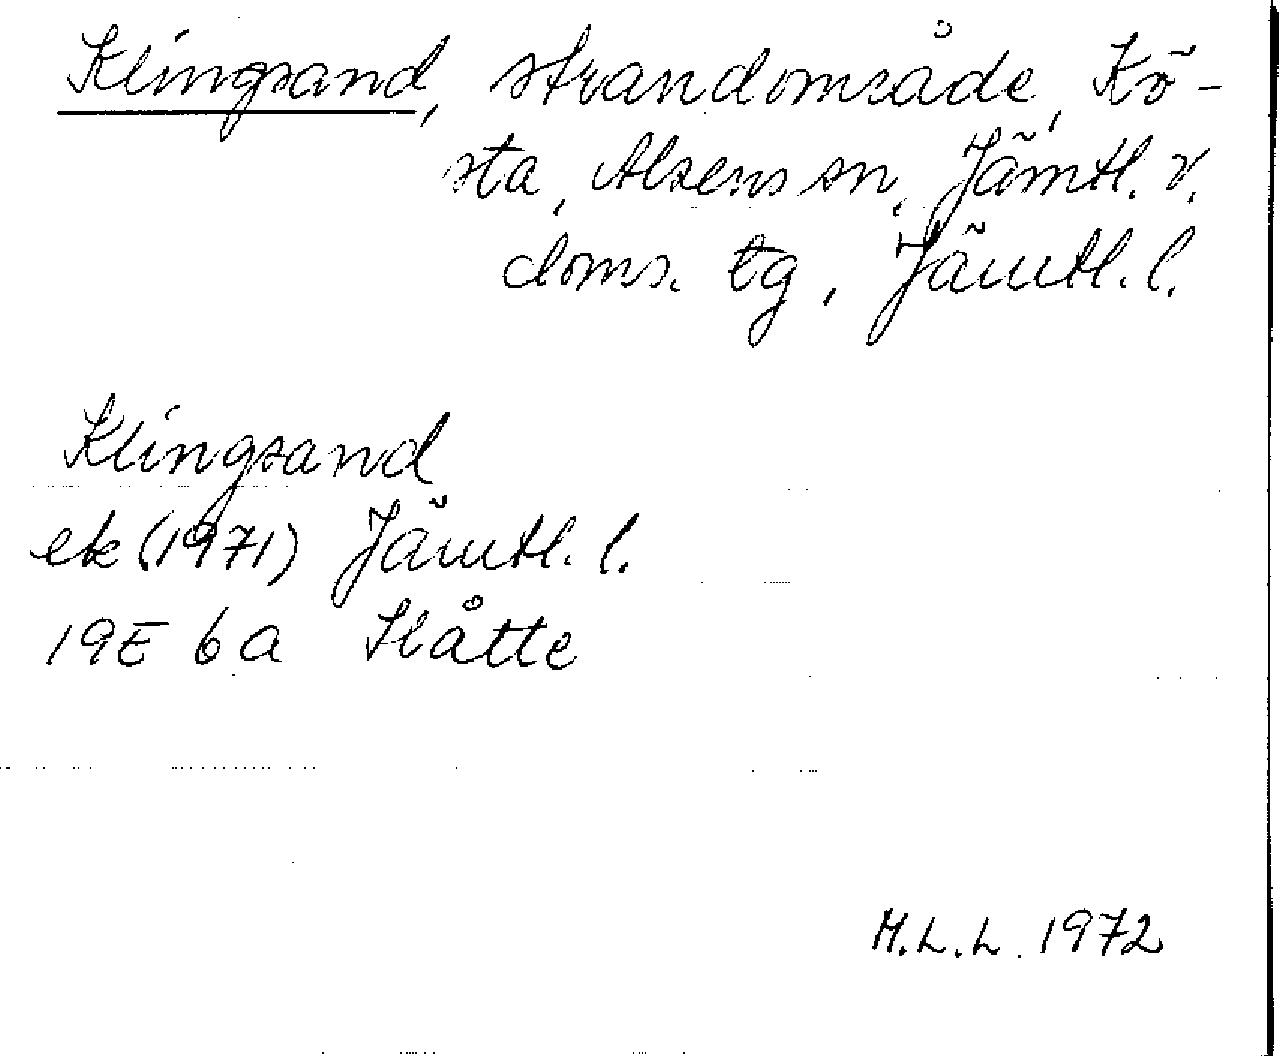 Klingsand, strandområde, Kö-
sta, Alsens sn, Jämtl. v.
doms. tg, Jämtl. l.
Klingsand
ek (1971) Jämtl. l.
19E 6a Slåtte
M.L.L. 1972